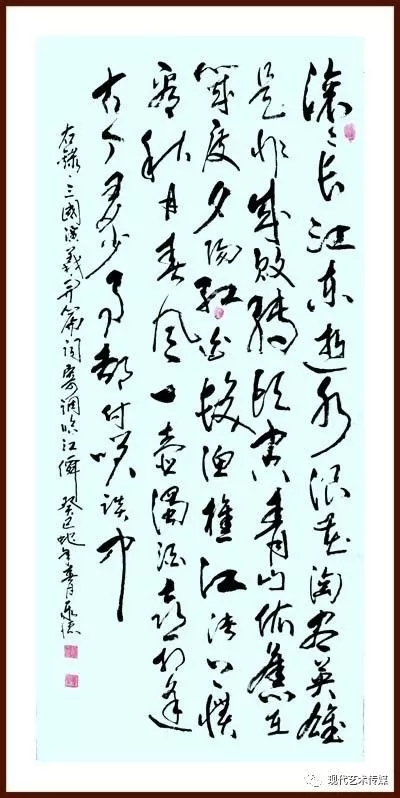 滚滚长江东逝水浪花淘尽英雄
是非成败转头空青山依旧在
几度夕阳红白发渔樵江渚上惯
看秋月春风一壶浊酒喜相逢
古今多少事都付笑谈中
右錄·三國演義开篇詞寄調临江僊癸巳蛇年春月
现代艺术传媒